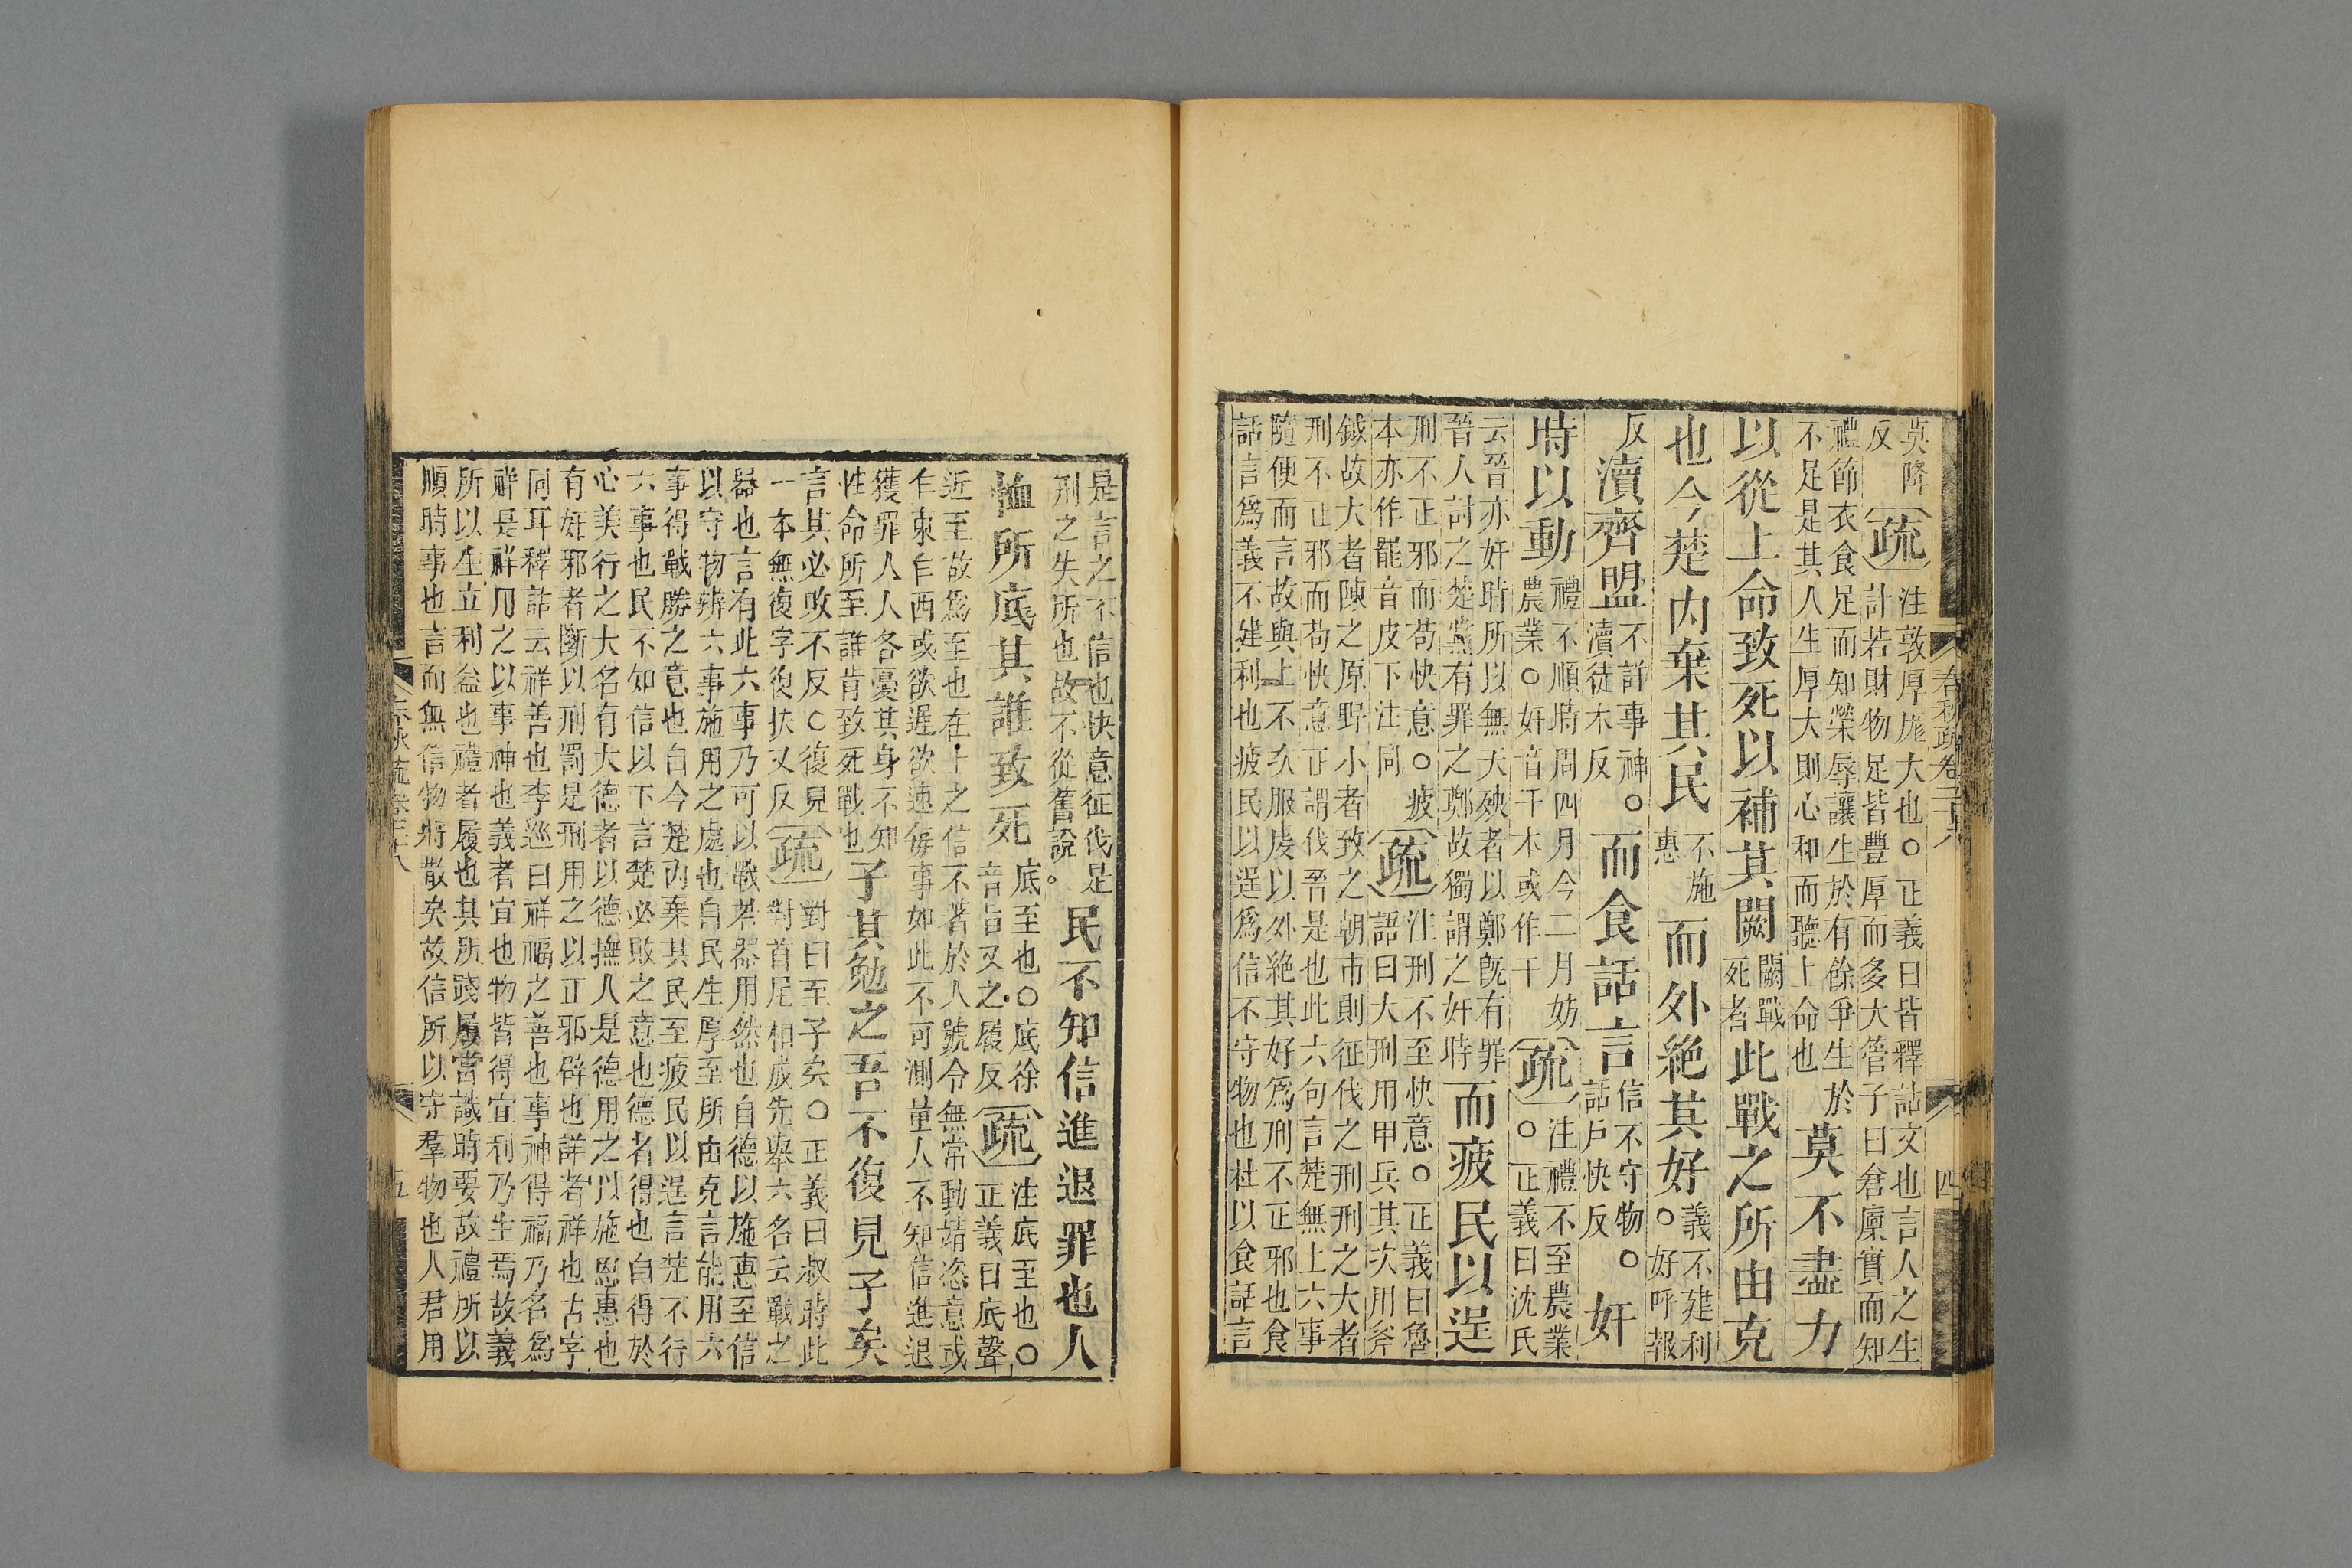 莫降
反
疏
注敦厚厖大也○正義曰皆釋詁文也言人之生
計若財物足皆豐厚而多大管子曰君廩實而知
禮節衣食足而知榮辱讓生於有餘爭生於
不足是其人生厚大則心和而聽上命也
莫不盡力
以從上命致死以補其闕
闕戰
死者
此戰之所由克
也今楚内棄其民
不施
惠
而外絶其好
義不建利
○好呼報
反
瀆齊盟
不詳事神○
瀆徒木反
而食話言
信不守物○
話戶快反
奸
時以動
禮不順時周四月今二月妨
農業○奸音干本或作干
疏
注禮不至農業
○正義曰沈氏
云晉亦奸時所以無大殃者以鄭旣有罪
晉人討之楚黨有罪之鄭故獨謂之奸時
而疲民以逞
刑不正邪而苟快意○疲
本亦作罷音皮下注同
疏
注刑不至快意○正義曰魯
語曰大刑用甲兵其次用斧
鉞故大者陳之原野小者致之朝市則征伐之刑刑之大者
刑不正邪而苟快意正謂伐晉是也此六句言楚無上六事
隨便而言故與上不次服虔以外絶其好爲刑不正邪也食
話言爲義不建利也疲民以逞爲信不守物也杜以食話言
春秋疏卷二十八
四
是言之不信也快意征伐是
刑之失所也故不從舊說。
民不知信進退罪也人
恤所底其誰致死
底至也○底徐
音旨又之履反
疏
注底至也○
正義曰底聲
近至故爲至也在上之信不著於人號令無常動靜恣意或
乍東乍西或欲遲欲速每事如此不可測量人不知信進退
獲罪人人各憂其身不知
性命所至誰肯致死戰也
子其勉之吾不復見子矣
言其必敗不反○復見
一本無復字復扶又反
疏
對曰至子矣○正義曰叔時此
對首尾相成先舉六名云戰之
器也言有此六事乃可以戰若器用然也自德以施惠至信
以守物辨六事施用之處也自民生厚至所由克言能用六
事得戰勝之意也自今楚内棄其民至疲民以逞言楚不行
六事也民不知信以下言楚必敗之意也德者得也自得於
心美行之大名有大德者以德撫人是德用之以施恩惠也
有姧邪者斷以刑罰是刑用之以正邪辟也詳者祥也古字
同耳釋詁云祥善也李巡曰祥福之善也事神得福乃名爲
祥是祥用之以事神也義者宜也物皆得宜利乃生焉故義
所以生立利益也禮者履也其所踐履當識時要故禮所以
順時事也言而無信物將散矣故信所以守羣物也人君用
春秋疏卷二十八
五